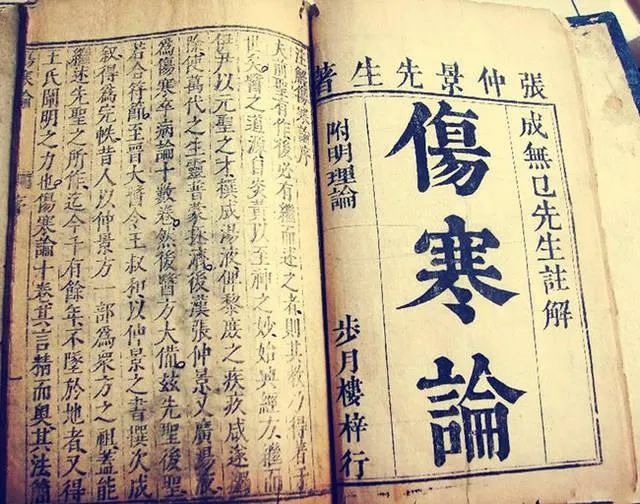 張仲景先生著
成無已先生註解
傷寒論
附明理論
步月樓梓行
注解傷寒論序
夫前聖有作後必有繼而述之者則其教乃得著于
世矣醫之道源自炎黃以至神之妙始興經方繼而
伊尹以元聖之才撰成湯液俾黎庶之疾疢咸遂蠲
除使萬代之生靈普蒙拯濟後漢張仲景又廣湯液
為傷寒卒病論十數卷然後醫方大備茲先聖後聖
若合符節至晉太醫令王叔和以仲景之書撰次成
叙得為完帙昔人以仲景方一部為衆方之祖蓋能
繼述先聖之所作迄今千有餘年不墜於地者又得
王氏闡明之力也傷寒論十卷其言精而奧其法簡
傷寒論